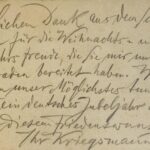 lichen Dank aus dem
für die Weihnachts- u
Freude, die Sie mir u
bereitet haben.
unser Möglichstes tun
ein deutsches Jubeljahr
diesem Friedenswun
Ihr Kriegsmann